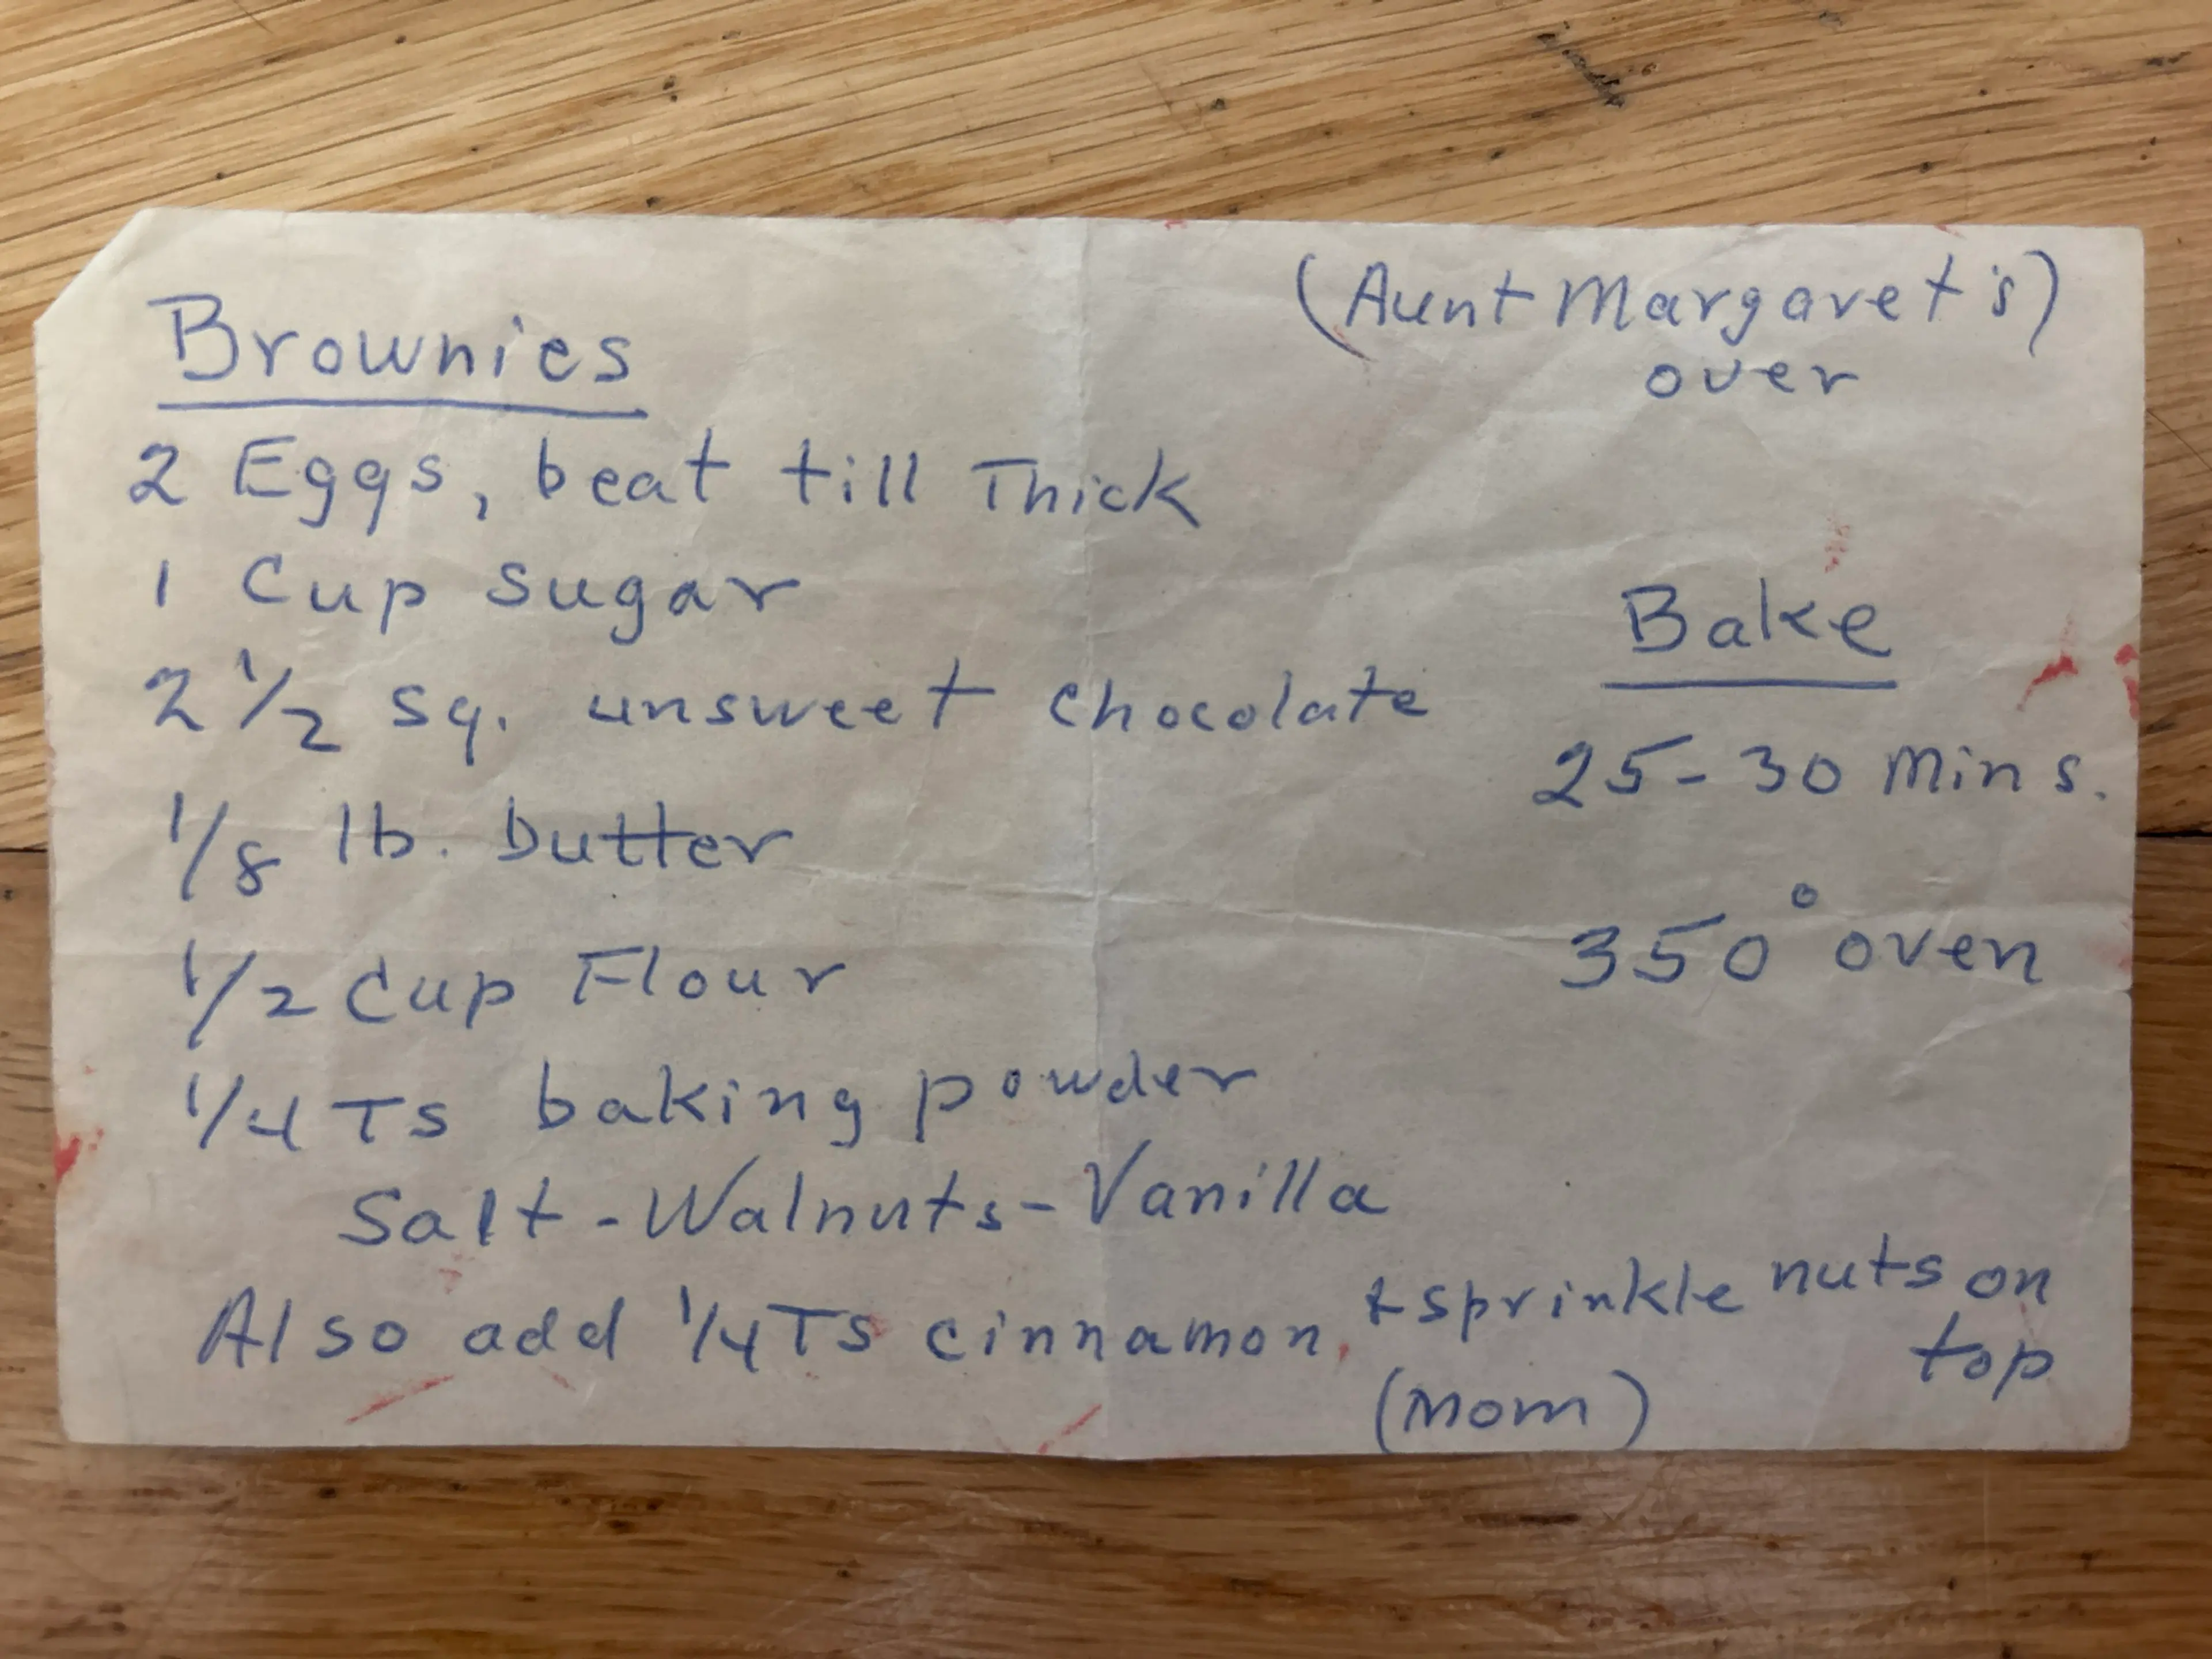 Brownies
(Aunt Margaret's)
over
2 Eggs, beat till Thick
1 Cup sugar
2 1/2 sq. unsweet chocolate
1/8 lb. butter
1/2 Cup Flour
1/4 Ts baking powder
Salt - Walnuts - Vanilla
Also add 1/4 Ts cinnamon, + sprinkle nuts on
top
(Mom)
Bake
25-30 Mins.
350° oven